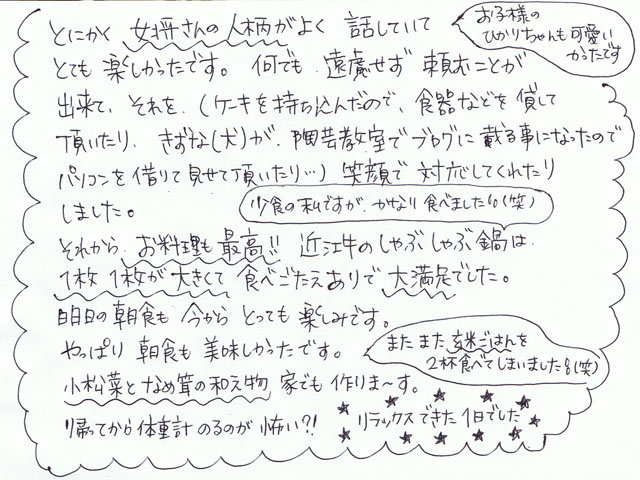 とにかく 女将さんの人柄がよく 話していて
お子様の
ひかりちゃんも可愛い
かったです
とても 楽しかったです。 何でも 遠慮せず 頼むことが
出来て、それを、(ケーキを持ち込んだので、食器などを貸して
頂いたり、きずな(犬)が、陶芸教室でブログに載る事になったので
パソコンを借りて見せて頂いたり…) 笑顔で 対応してくれたり
しました。
少食の私ですが、かなり食べました!!(笑)
それから、お料理も最高!! 近江牛のしゃぶしゃぶ鍋は、
1枚1枚が大きくて 食べごたえありで 大満足でした。
明日の朝食も 今から とっても 楽しみです。
やっぱり 朝食も 美味しかったです。
またまた、玄米ごはんを
2杯食べてしまいました!!(笑)
小松菜となめ茸の和え物 家でも作りま〜す。
帰ってから体重計のるのが怖い?!
リラックスできた1日でした